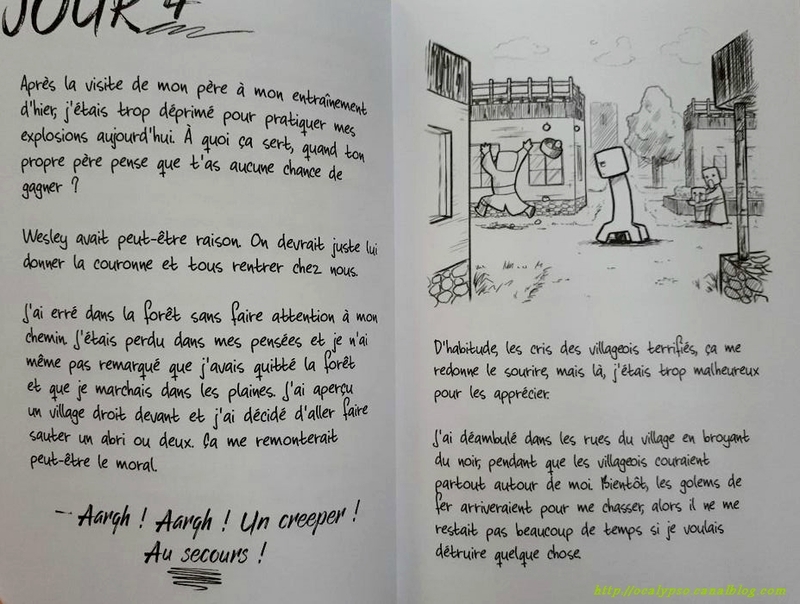 JOUR 4
Après la visite de mon père à mon entraînement
d'hier, j'étais trop déprimé pour pratiquer mes
explosions aujourd'hui. À quoi ça sert, quand ton
propre père pense que t'as aucune chance de
gagner ?
Wesley avait peut-être raison. On devrait juste lui
donner la couronne et tous rentrer chez nous.
J'ai erré dans la forêt sans faire attention à mon
chemin. J'étais perdu dans mes pensées et je n'ai
même pas remarqué que j'avais quitté la forêt
et que je marchais dans les plaines. J'ai aperçu
un village droit devant et j'ai décidé d'aller faire
sauter un abri ou deux. Ça me remonterait
peut-être le moral.
- Aargh ! Aargh ! Un creeper !
Au secours !
D'habitude, les cris des villageois terrifiés, ça me
redonne le sourire, mais là, j'étais trop malheureux
pour les apprécier.
J'ai déambulé dans les rues du village en broyant
du noir, pendant que les villageois couraient
partout autour de moi. Bientôt, les golems de
fer arriveraient pour me chasser, alors il ne me
restait pas beaucoup de temps si je voulais
détruire quelque chose.
http://ocalypso.canalblog.com